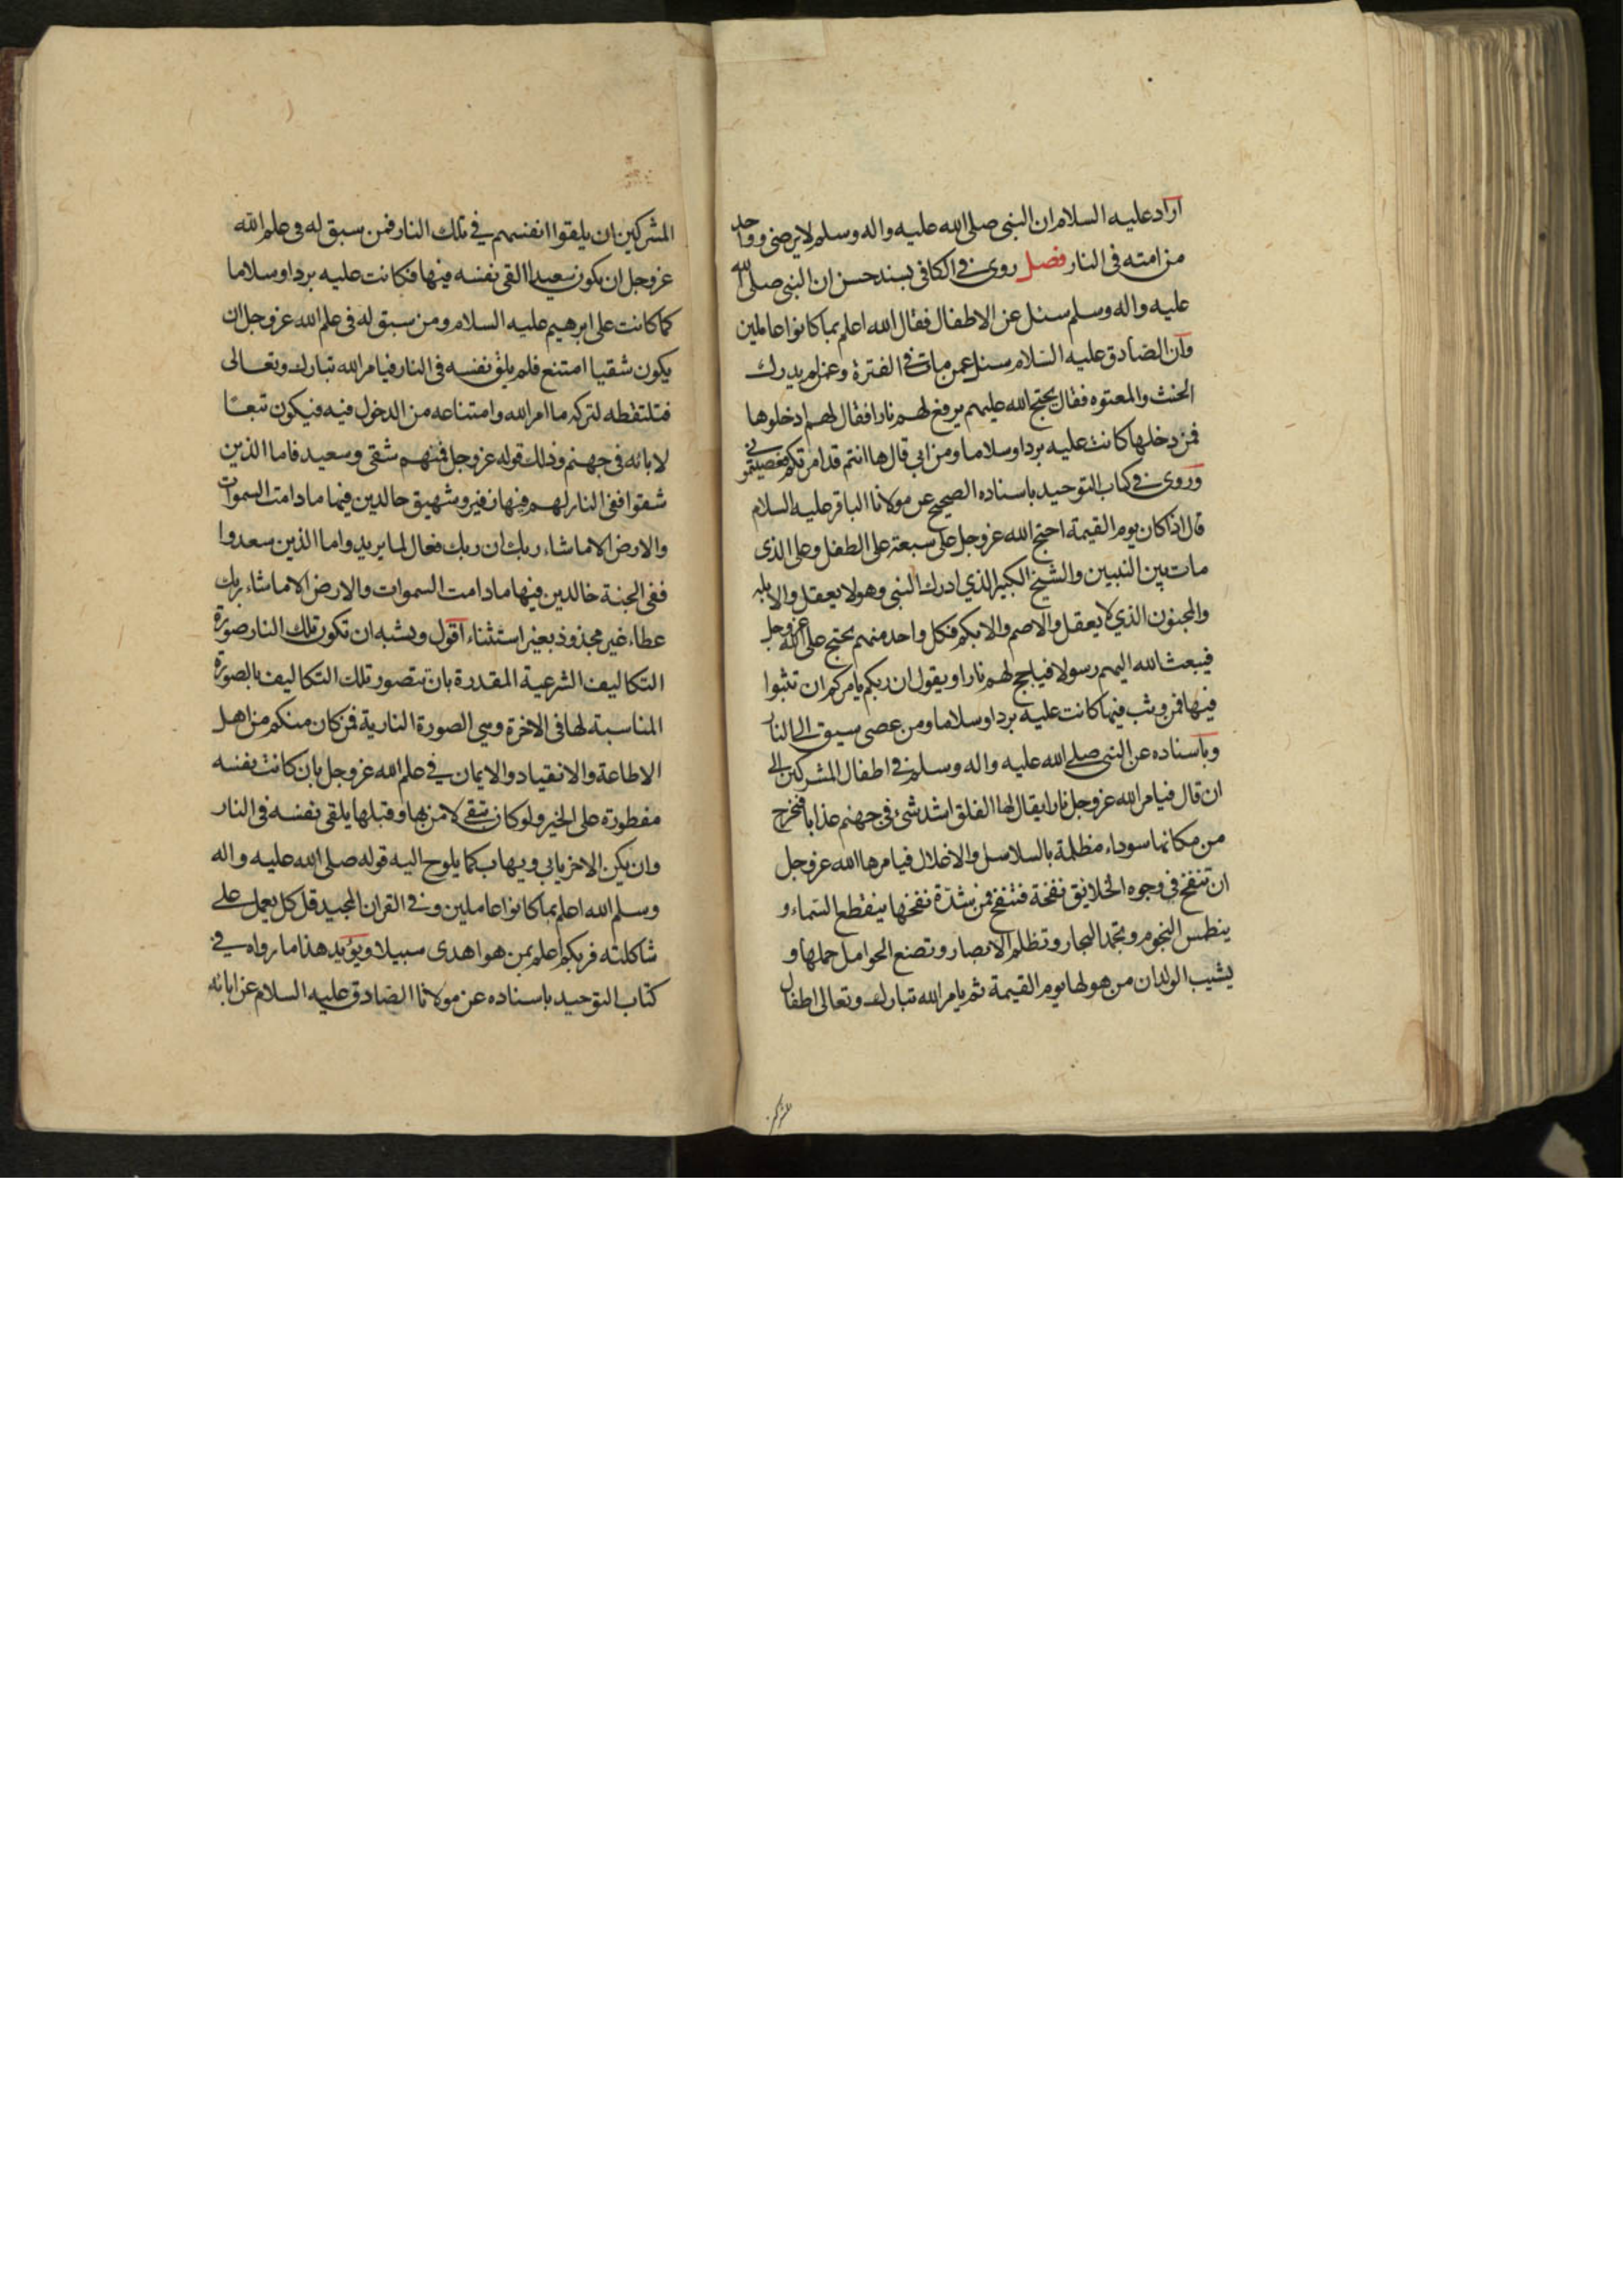 اراد عليه السلام ان النبى صلى الله عليه واله وسلم لا يرضى وواحد
من امته فى النار فصل روى فى الكافى بسند حسن ان النبى صلى الله
عليه واله وسلم سئل عن الاطفال فقال الله اعلم بما كانوا عاملين
وان الصادق عليه السلام سئل عمن مات فى الفترة وعمن لم يدرك
الحنث والمعتوه فقال يحتج الله عليهم يرفع لهم نارا فقال لهم ادخلوها
فمن دخلها كانت عليه بردا وسلاما ومن ابى قال ها انتم قد امرتكم فعصيتمونى
وروى فى كتاب التوحيد باسناده الصحيح عن مولانا الباقر عليه السلام
قال اذا كان يوم القيمة احتج الله عز وجل على سبعة على الطفل وعلى الذى
مات بين النبيين والشيخ الكبير الذي ادرك النبى وهو لا يعقل والابله
والمجنون الذي لا يعقل والاصم والابكم فكل واحد منهم يحتج على الله عز وجل
فيبعث الله اليهم رسولا فياجج لهم نارا ويقول ان ربكم يامركم ان تثبوا
فيها فمن وثب فيها كانت عليه بردا وسلاما ومن عصى سيق الى النار
وباسناده عن النبى صلى الله عليه واله وسلم فى اطفال المشركين الى
ان قال فيامر الله عز وجل نارا يقال لها الفلق اشد شئ فى جهنم عذابا فتخرج
من مكانها سوداء مظلمة بالسلاسل والاغلال فيامرها الله عز وجل
ان تنفخ فى وجوه الخلايق نفخة فتنفخ فمن شدة نفخها ينقطع السماء و
ينطمس النجوم وتجمد البحار وتظلم الابصار وتضع الحوامل حملها و
يشيب الولدان من هولها يوم القيمة ثم يامر الله تبارك وتعالى اطفال
المشركين ان يلقوا انفسهم في تلك النار فمن سبق له فى علم الله
عز وجل ان يكون سعيدا القى نفسه فيها فكانت عليه بردا وسلاما
كما كانت على ابرهيم عليه السلام ومن سبق له فى علم الله عز وجل ان
يكون شقيا امتنع فلم يلق نفسه فى النار فيامر الله تبارك وتعالى
فتلتقطه لتركه ما امر الله وامتناعه من الدخول فيه فيكون تبعًا
لابائه فى جهنم وذلك قوله عز وجل فمنهم شقى وسعيد فاما الذين
شقوا ففى النار لهم فيها زفير وشهيق خالدين فيها ما دامت السموات
والارض الا ما شاء ربك ان ربك فعال لما يريد واما الذين سعدوا
ففى الجنة خالدين فيها ما دامت السموات والارض الا ما شاء ربك
عطاء غير مجذوذ بغير استثناء اقول ويشبه ان تكون تلك النار صورة
التكاليف الشرعية المقدرة بان تتصور تلك التكاليف بالصورة
المناسبة لها فى الاخرة وهى الصورة النارية فمن كان منكم من اهل
الاطاعة والانقياد والايمان في علم الله عز وجل بان كانت نفسه
مفطورة على الخير ولو كان بقى لامن بها وقبلها يلقى نفسه فى النار
وان يكن الاخر يابي ويهاب كما يلوح اليه قوله صلى الله عليه واله
وسلم الله اعلم بما كانوا عاملين وفى القران المجيد قل كل يعمل على
شاكلته فربكم اعلم بمن هو اهدى سبيلا ويؤيد هذا ما رواه فى
كتاب التوحيد باسناده عن مولانا الصادق عليه السلام عن ابائه